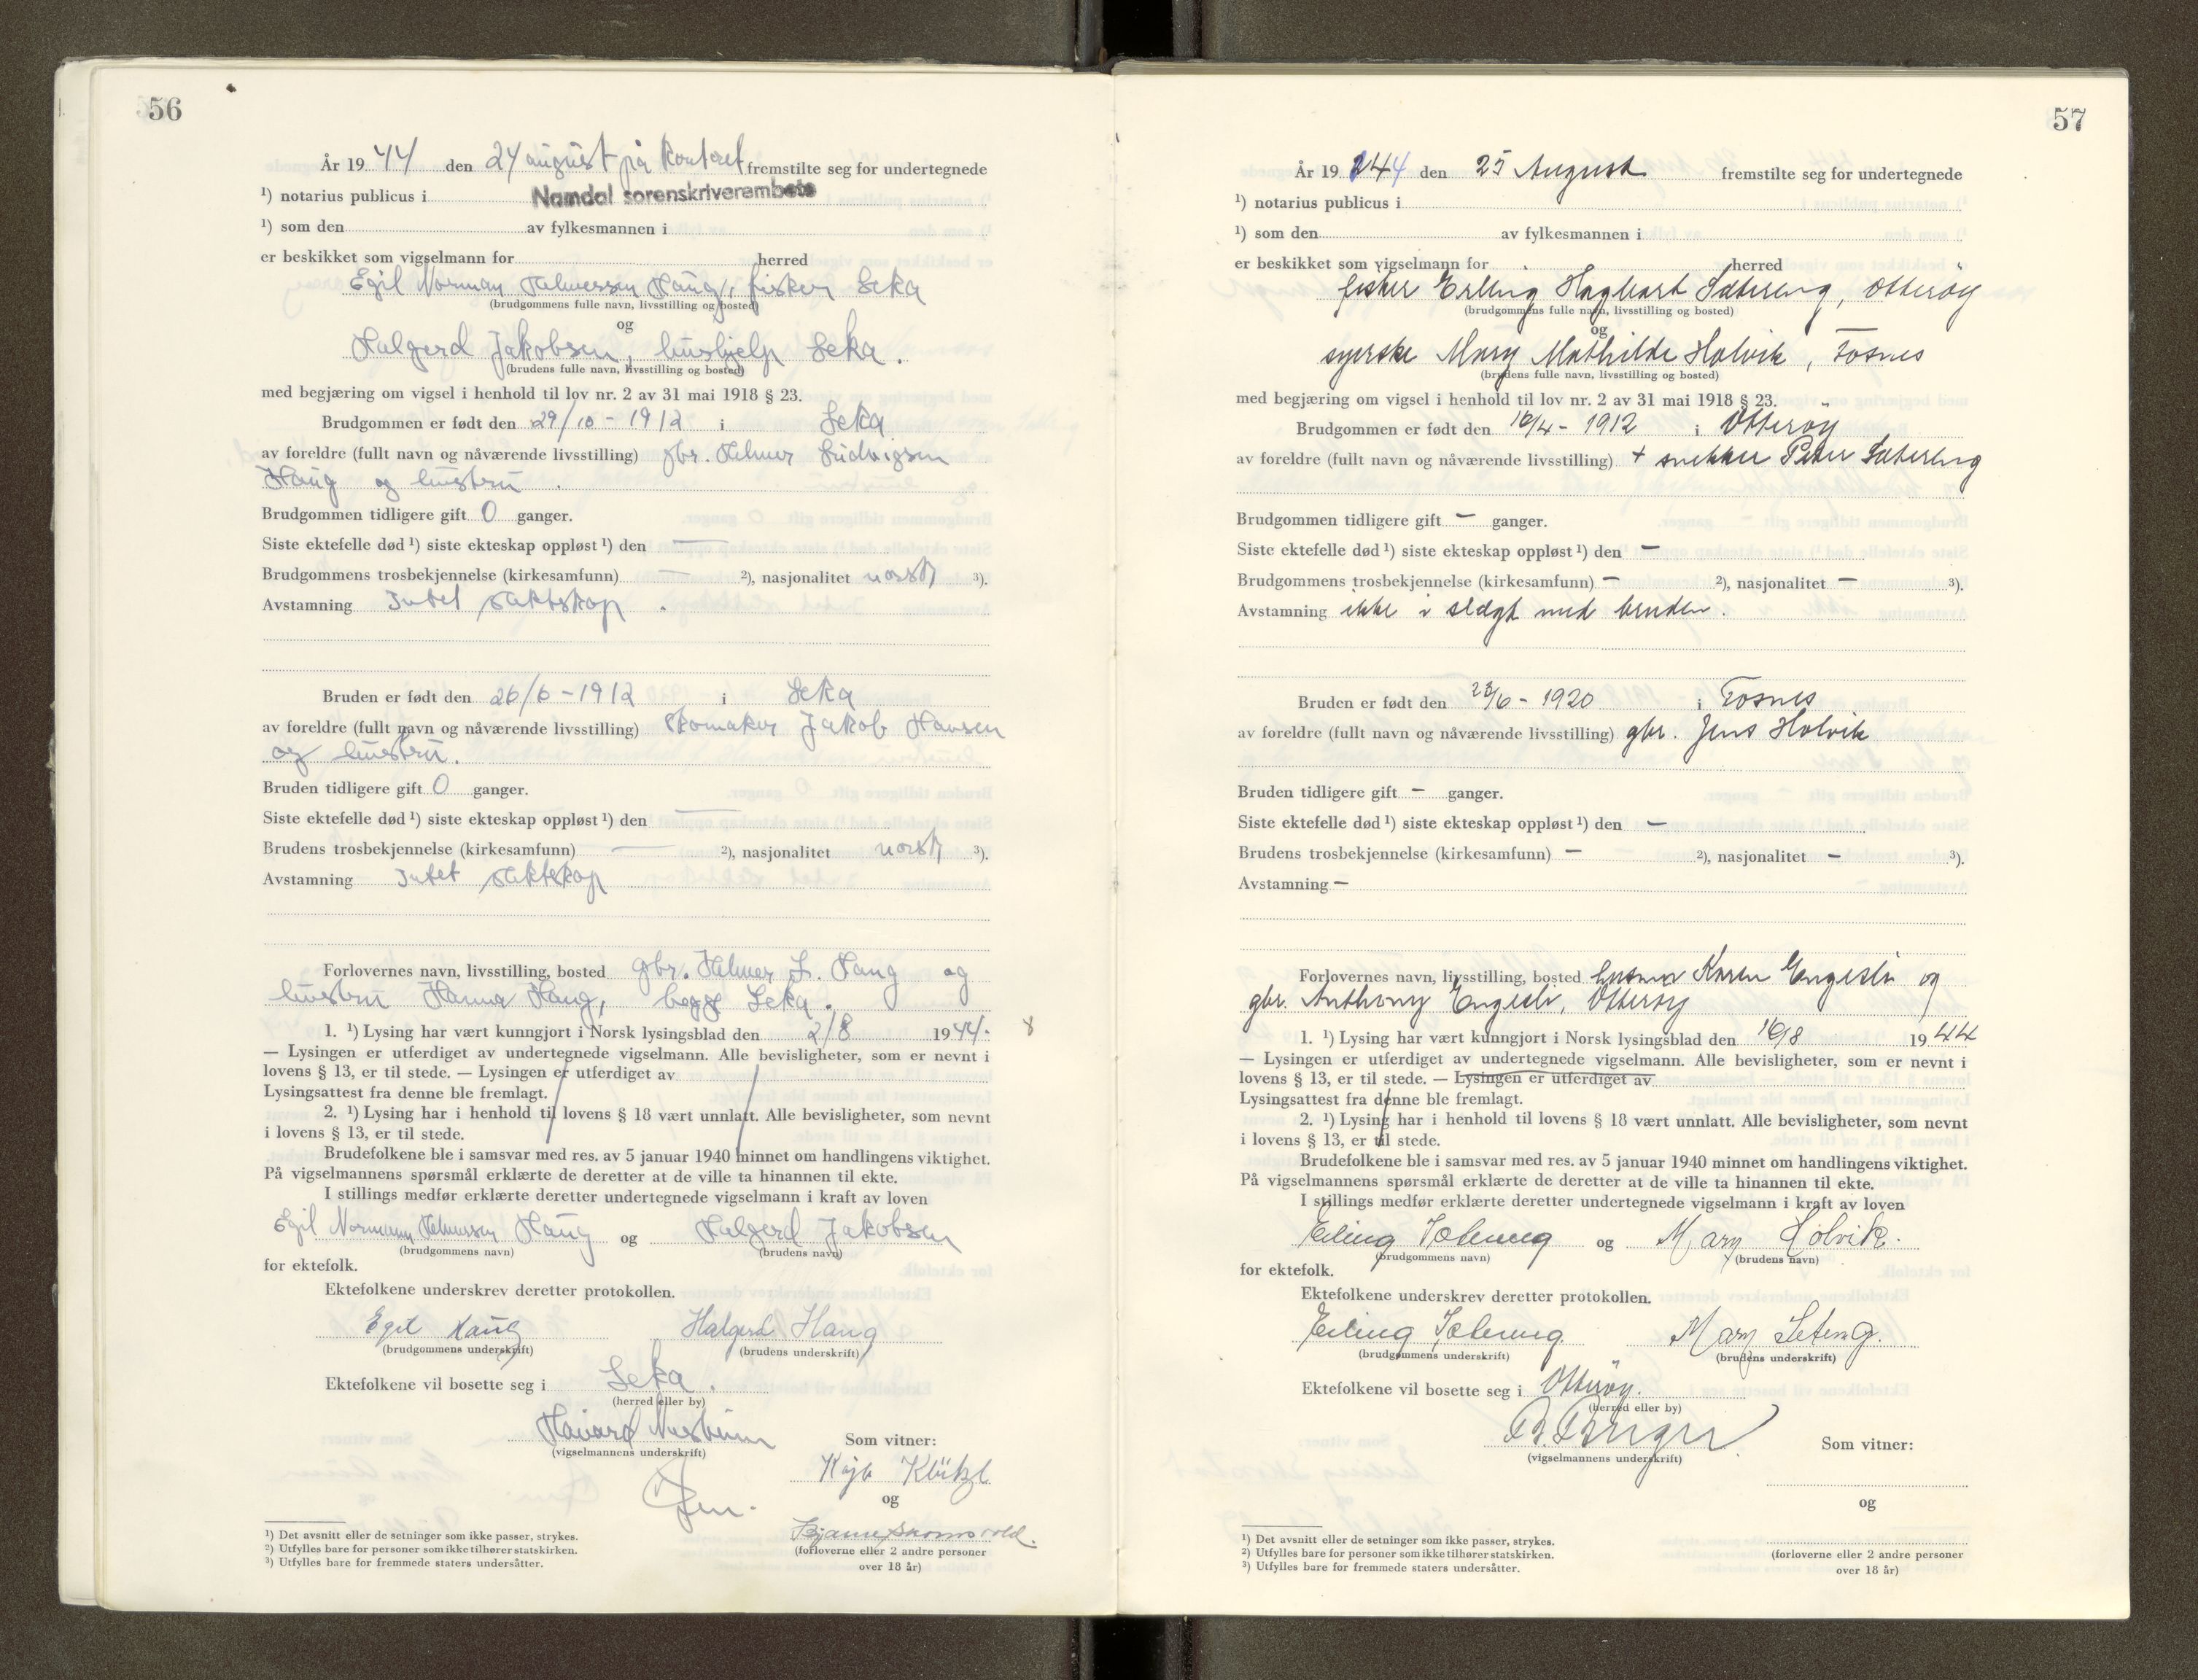 56
År 19 44 den 24 august på kontoret fremstilte seg for undertegnede
¹) notarius publicus i Namdal sorenskriverembete
¹) som den av fylkesmannen i
er beskikket som vigselmann for herred
Egil Norman Helmersen Haug, fisker Leka
(brudgommens fulle navn, livsstilling og bosted)
og
Halgerd Jakobsen, hushjelp Leka.
(brudens fulle navn, livsstilling og bosted)
med begjæring om vigsel i henhold til lov nr. 2 av 31 mai 1918 § 23.
Brudgommen er født den 29/10 - 1912 i Leka
av foreldre (fullt navn og nåværende livsstilling) gbr. Helmer Ludvigsen
Haug og hustru.
Brudgommen tidligere gift 0 ganger.
Siste ektefelle død ¹) siste ekteskap oppløst ¹) den —
Brudgommens trosbekjennelse (kirkesamfunn) — ²), nasjonalitet norsk ³).
Avstamning Intet slektskap.
Bruden er født den 26/6 - 1912 i Leka
av foreldre (fullt navn og nåværende livsstilling) Skomaker Jakob Hansen
og hustru.
Bruden tidligere gift 0 ganger.
Siste ektefelle død ¹) siste ekteskap oppløst ¹) den —
Brudens trosbekjennelse (kirkesamfunn) — ²), nasjonalitet norsk ³).
Avstamning Intet slektskap
Forlovernes navn, livsstilling, bosted gbr. Helmer L. Haug og
hustru Hanna Haug, begge Leka.
1. ¹) Lysing har vært kunngjort i Norsk lysingsblad den 2/8 19 44.
— Lysingen er utferdiget av undertegnede vigselmann. Alle bevisligheter, som er nevnt i
lovens § 13, er til stede. — Lysingen er utferdiget av
Lysingsattest fra denne ble fremlagt.
2. ¹) Lysing har i henhold til lovens § 18 vært unnlatt. Alle bevisligheter, som nevnt
i lovens § 13, er til stede.
Brudefolkene ble i samsvar med res. av 5 januar 1940 minnet om handlingens viktighet.
På vigselmannens spørsmål erklærte de deretter at de ville ta hinannen til ekte.
I stillings medfør erklærte deretter undertegnede vigselmann i kraft av loven
Egil Normann Helmersen Haug og Halgerd Jakobsen
(brudgommens navn) (brudens navn)
for ektefolk.
Ektefolkene underskrev deretter protokollen.
Egil Haug Halgerd Haug
(brudgommens underskrift) (brudens underskrift)
Ektefolkene vil bosette seg i Leka.
(herred eller by)
Håvard
(vigselmannens underskrift)
Som vitner:
og
Bjarne
(forloverne eller 2 andre personer
over 18 år)
¹) Det avsnitt eller de setninger som ikke passer, strykes.
²) Utfylles bare for personer som ikke tilhører statskirken.
³) Utfylles bare for fremmede staters undersåtter.
57
År 19 44 den 25 August fremstilte seg for undertegnede
¹) notarius publicus i
¹) som den av fylkesmannen i
er beskikket som vigselmann for herred
fisker Erling Hagbart Sætereng, Otterøy
(brudgommens fulle navn, livsstilling og bosted)
og
syerske Mary Mathilde Holvik, Fosnes
(brudens fulle navn, livsstilling og bosted)
med begjæring om vigsel i henhold til lov nr. 2 av 31 mai 1918 § 23.
Brudgommen er født den 16/4 - 1912 i Otterøy
av foreldre (fullt navn og nåværende livsstilling) + snekker Peter Sætereng
Brudgommen tidligere gift — ganger.
Siste ektefelle død ¹) siste ekteskap oppløst ¹) den —
Brudgommens trosbekjennelse (kirkesamfunn) — ²), nasjonalitet — ³).
Avstamning ikke i slægt med bruden.
Bruden er født den 23/6 - 1920 i Fosnes
av foreldre (fullt navn og nåværende livsstilling) gbr. Jens Holvik
Bruden tidligere gift — ganger.
Siste ektefelle død ¹) siste ekteskap oppløst ¹) den —
Brudens trosbekjennelse (kirkesamfunn) — ²), nasjonalitet — ³).
Avstamning —
Forlovernes navn, livsstilling, bosted husmor Karen Engesli og
gbr. Anthony Engesli, Otterøy
1. ¹) Lysing har vært kunngjort i Norsk lysingsblad den 16/8 19 44
— Lysingen er utferdiget av undertegnede vigselmann. Alle bevisligheter, som er nevnt i
lovens § 13, er til stede. — Lysingen er utferdiget av
Lysingsattest fra denne ble fremlagt.
2. ¹) Lysing har i henhold til lovens § 18 vært unnlatt. Alle bevisligheter, som nevnt
i lovens § 13, er til stede.
Brudefolkene ble i samsvar med res. av 5 januar 1940 minnet om handlingens viktighet.
På vigselmannens spørsmål erklærte de deretter at de ville ta hinannen til ekte.
I stillings medfør erklærte deretter undertegnede vigselmann i kraft av loven
Erling Sætereng og Mary Holvik.
(brudgommens navn) (brudens navn)
for ektefolk.
Ektefolkene underskrev deretter protokollen.
Erling Sætereng Mary Seterng.
(brudgommens underskrift) (brudens underskrift)
Ektefolkene vil bosette seg i Otterøy.
(herred eller by)
(vigselmannens underskrift)
Som vitner:
og
(forloverne eller 2 andre personer
over 18 år)
¹) Det avsnitt eller de setninger som ikke passer, strykes.
²) Utfylles bare for personer som ikke tilhører statskirken.
³) Utfylles bare for fremmede staters undersåtter.